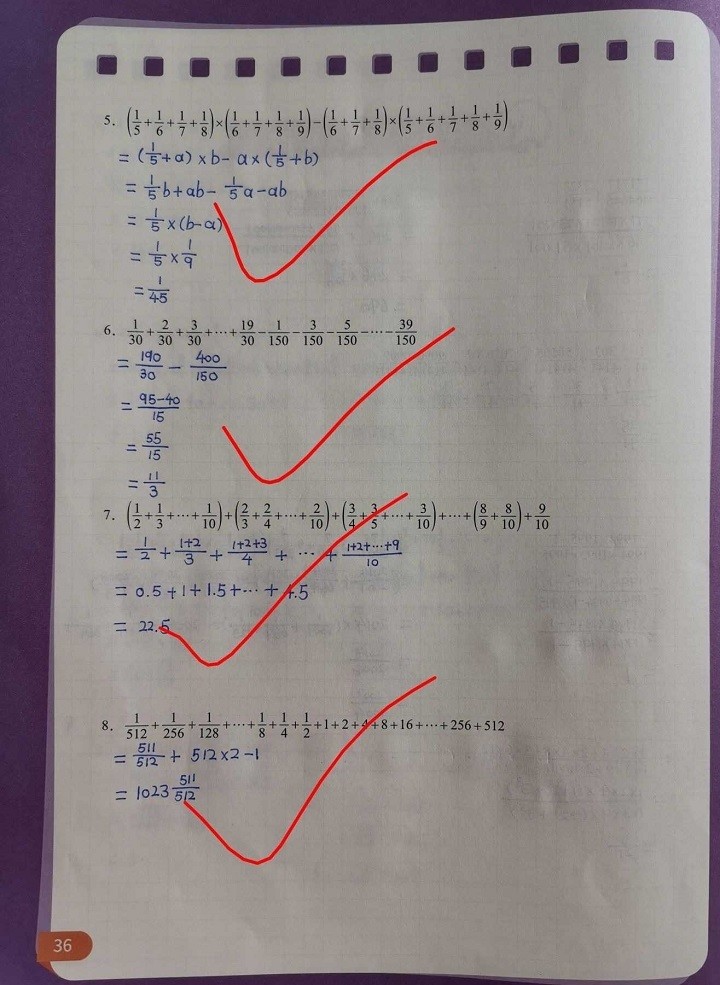 5. (1/5+1/6+1/7+1/8)×(1/6+1/7+1/8+1/9)−(1/6+1/7+1/8)×(1/5+1/6+1/7+1/8+1/9)
= (1/5+a)×b− a×(1/5+b)
= 1/5b+ab− 1/5a−ab
= 1/5×(b−a)
= 1/5×1/9
= 1/45
6. 1/30+2/30+3/30+⋯+19/30−1/150−3/150−5/150−⋯−39/150
= 190/30 − 400/150
= (95−40)/15
= 55/15
= 11/3
7. (1/2+1/3+⋯+1/10)+(2/3+2/4+⋯+2/10)+(3/4+3/5+⋯+3/10)+⋯+(8/9+8/10)+9/10
= 1/2+(1+2)/3+(1+2+3)/4+⋯+(1+2+⋯+9)/10
= 0.5+1+1.5+⋯+4.5
= 22.5
8. 1/512+1/256+1/128+⋯+1/8+1/4+1/2+1+2+4+8+16+⋯+256+512
= 511/512+ 512×2−1
= 1023 511/512
36